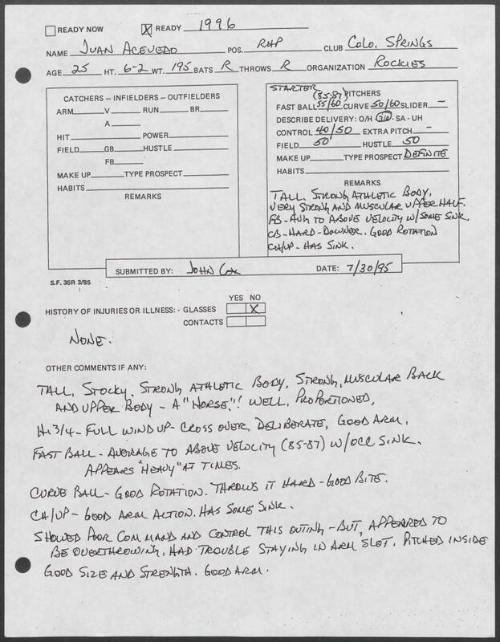 READY NOW ☒ READY 1996
NAME JUAN ACEVEDO POS. RHP CLUB COLO. SPRINGS
AGE 25 HT. 6-2 WT. 195 BATS R THROWS R ORGANIZATION ROCKIES
CATCHERS – INFIELDERS – OUTFIELDERS
ARM V RUN BR
A
HIT POWER
FIELD GB HUSTLE
FB
MAKE UP TYPE PROSPECT
HABITS
REMARKS
STARTER
(85-87) PITCHERS
FAST BALL 55/60 CURVE 50/60 SLIDER –
DESCRIBE DELIVERY: O/H 3/4 - SA - UH
CONTROL 40/50 EXTRA PITCH –
FIELD 50 HUSTLE 50
MAKE UP TYPE PROSPECT DEFINITE
HABITS
REMARKS
TALL, STRONG ATHLETIC BODY,
VERY STRONG AND MUSCULAR UPPER HALF.
FB - AVG TO ABOVE VELOCITY W/ SOME SINK.
CB - HARD - DOWNER. GOOD ROTATION
CH/UP - HAS SINK.
SUBMITTED BY: JOHN COX DATE: 7/30/95
S.F. 35R 3/85
YES NO
HISTORY OF INJURIES OR ILLNESS: - GLASSES X
CONTACTS
NONE.
OTHER COMMENTS IF ANY:
TALL, STOCKY, STRONG ATHLETIC BODY, STRONG, MUSCULAR BACK
AND UPPER BODY - A "HORSE"! WELL, PROPORTIONED,
Hi 3/4 - FULL WIND UP - CROSS OVER, DELIBERATE, GOOD ARM,
FAST BALL - AVERAGE TO ABOVE VELOCITY (85-87) W/ OCC SINK.
APPEARS "HEAVY" AT TIMES.
CURVE BALL - GOOD ROTATION. THROWS IT HARD - GOOD BITE.
CH/UP - GOOD ARM ACTION. HAS SOME SINK.
SHOWED POOR COMMAND AND CONTROL THIS OUTING - BUT, APPEARED TO
BE OVERTHROWING, HAD TROUBLE STAYING IN ARM SLOT. PITCHED INSIDE
GOOD SIZE AND STRENGTH. GOOD ARM.